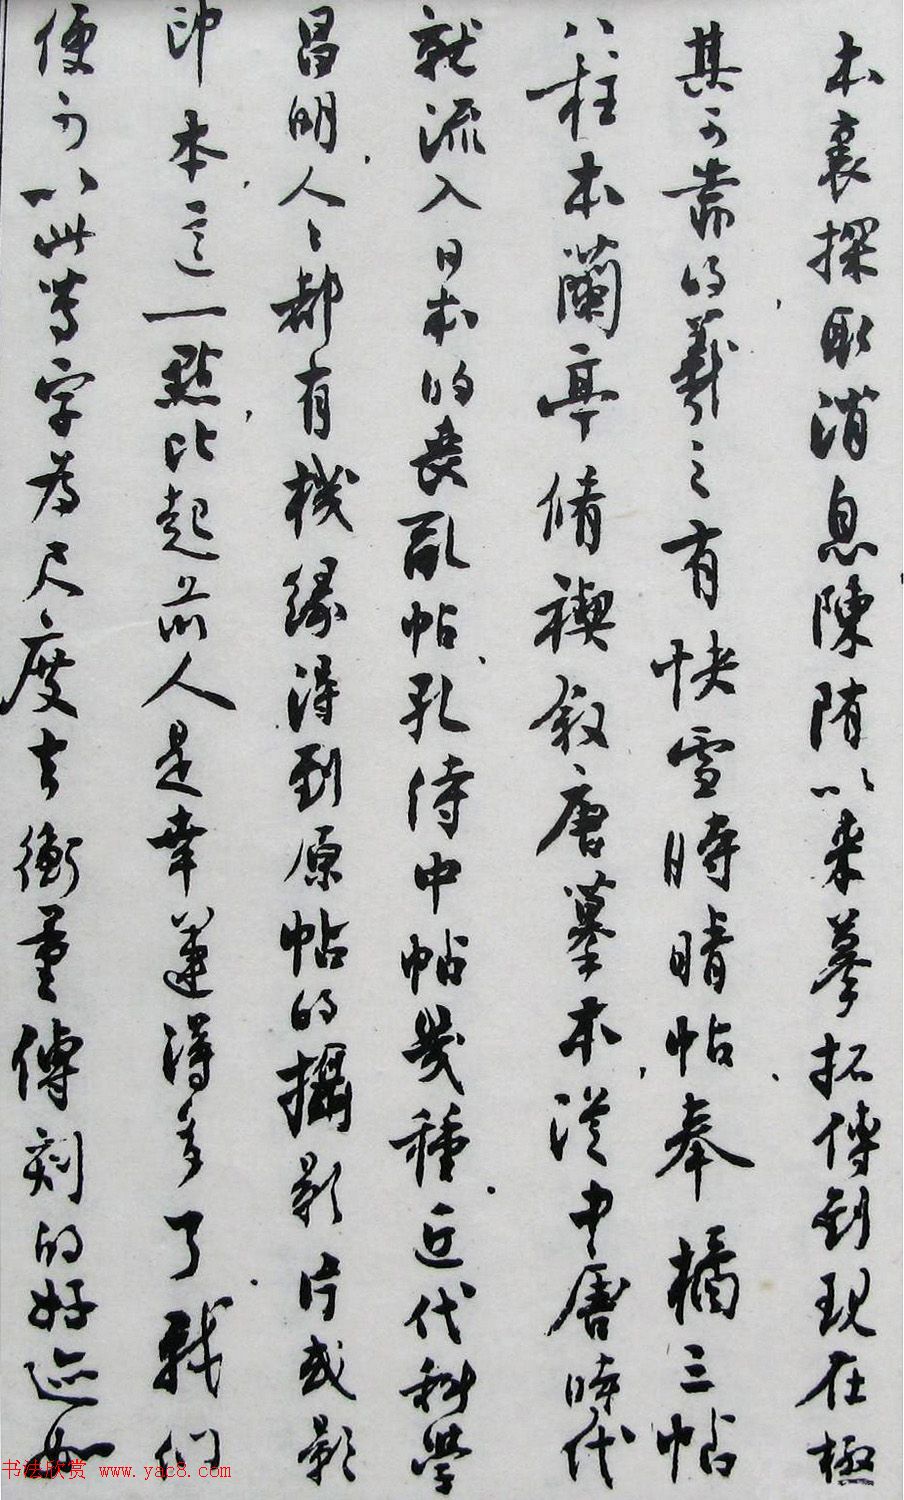 本裏探取消息陳隋以来摹拓傳到現在極
其可靠的羲之有快雪時晴帖奉橘三帖、
八柱本蘭亭脩禊叙唐摹本從中唐時代
就流入日本的喪亂帖、孔侍中帖幾種.近代科學
昌明,人々都有機緣得到原帖的攝影片或影
印本,這一點,比起前人是幸運得多了.我們
便可以此等字為尺度去衡量傳刻的好迹如
书法欣赏 www.yac8.com